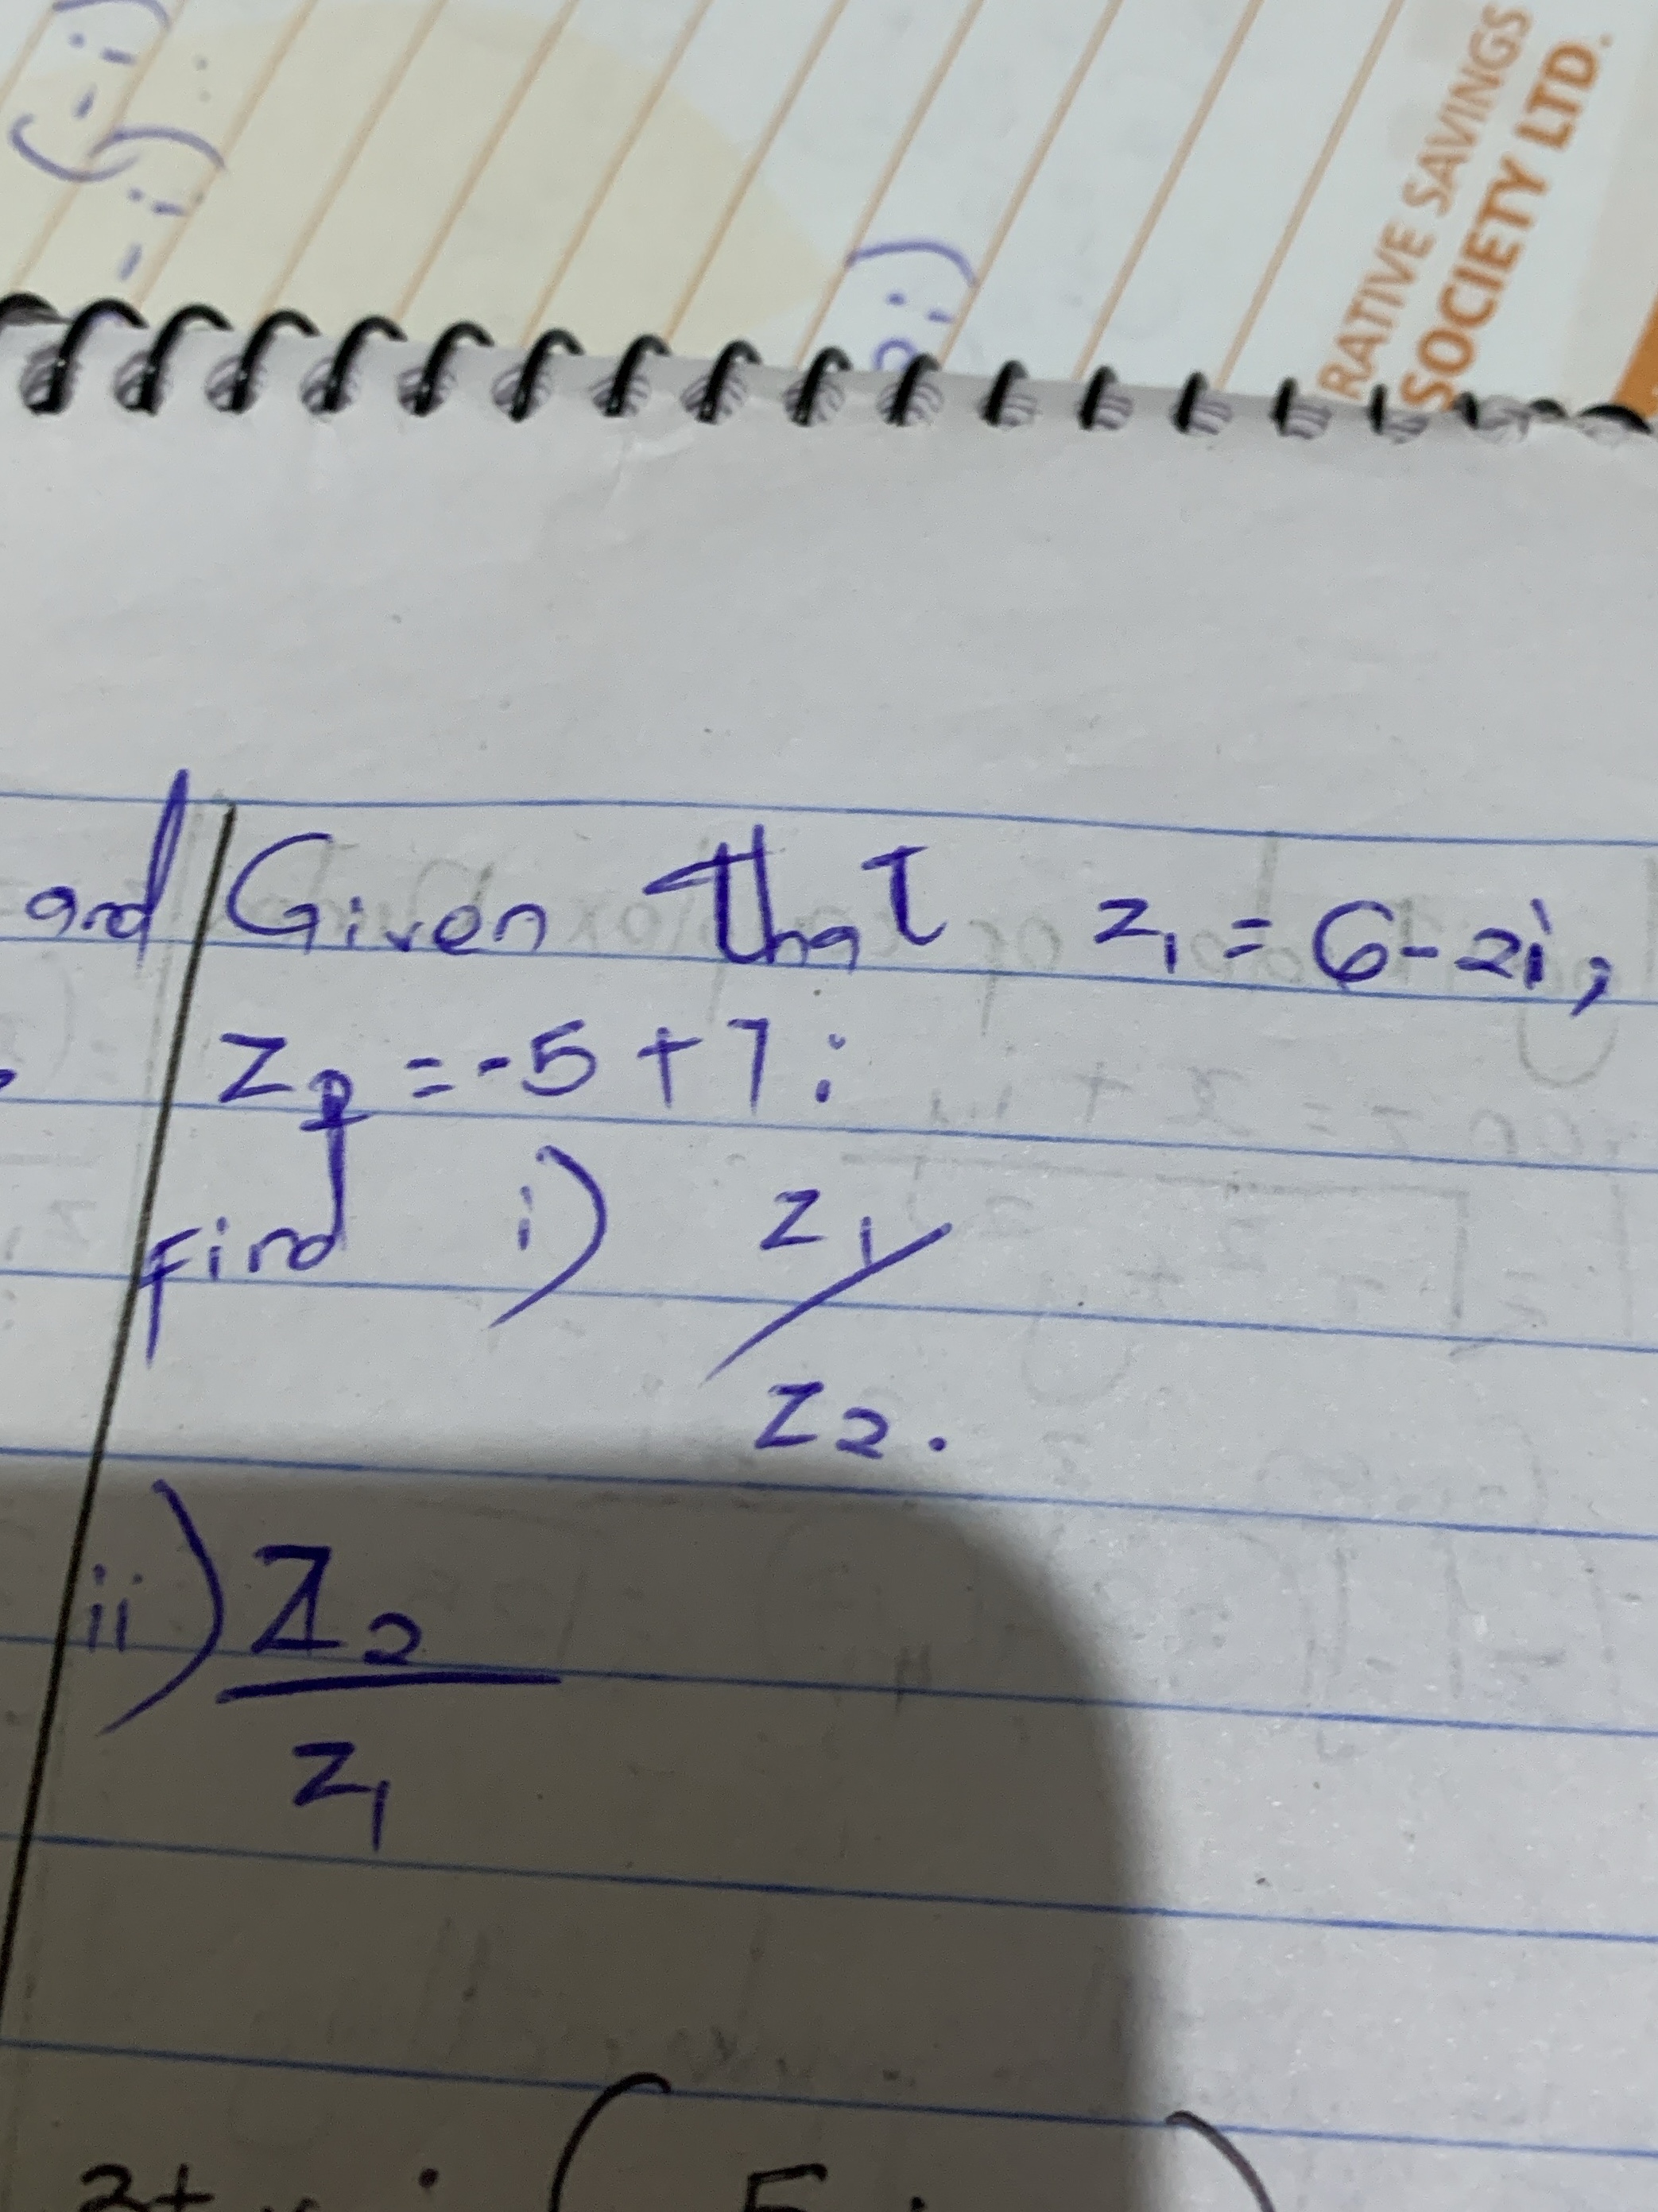 RATIVE SAVINGS
SOCIETY LTD.
and
Given that z₁ = 6-2i,
z₂ = -5+7i
Find i) z₁/
z₂.
ii) z₂
z₁